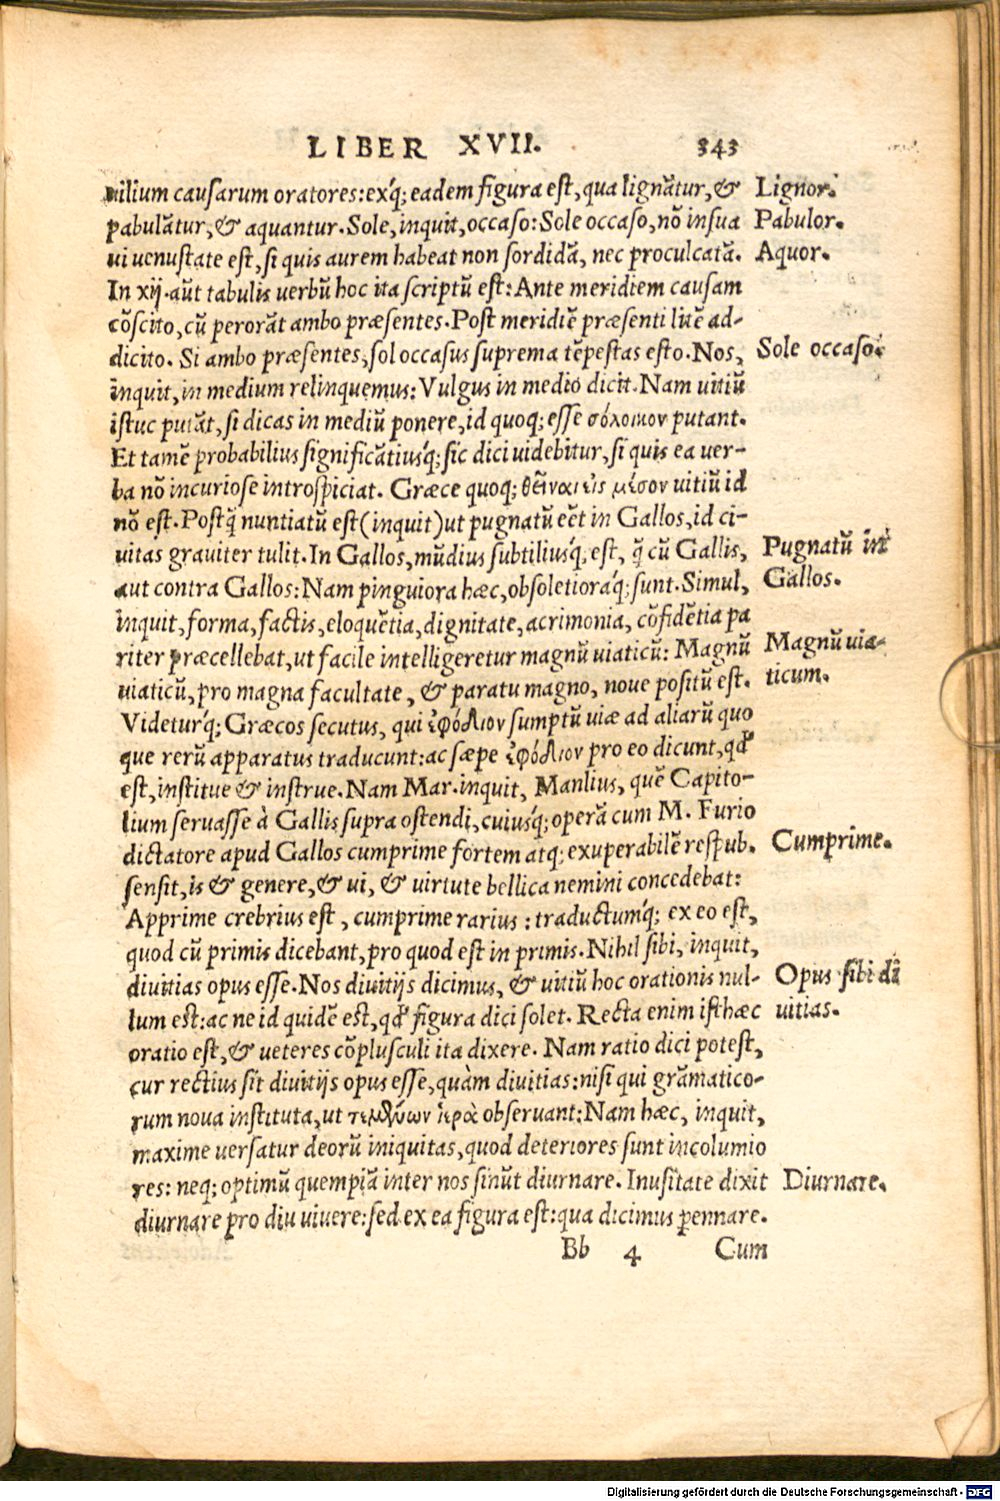 LIBER XVII. 343
uilium causarum oratores: exq́; eadem figura est, qua lignãtur, & Lignor.
pabulãtur, & aquantur. Sole, inquit, occaso: Sole occaso, nõ insua Pabulor.
ui uenustate est, si quis aurem habeat non sordidã, nec proculcatã. Aquor.
In xij. aũt tabulis uerbũ hoc ita scriptũ est: Ante meridiem causam
cõscito, cũ perorãt ambo præsentes. Post meridiẽ præsenti litẽ ad-
dicito. Si ambo præsentes, sol occasus suprema tẽpestas esto. Nos, Sole occaso.
inquit, in medium relinquemus: Vulgus in medio dicit. Nam uitiũ
istuc putãt, si dicas in mediũ ponere, id quoq; esse σόλοικον putant.
Et tamẽ probabilius significãtiusq́; sic dici uidebitur, si quis ea uer-
ba nõ incuriose introspiciat. Græce quoq; θεῖναι εἰς μέσον uitiũ id
nõ est. Postq̃ nuntiatũ est (inquit) ut pugnatũ eẽt in Gallos, id ci-
uitas grauiter tulit. In Gallos, mũdius subtiliusq́; est, q̃ cũ Gallis, Pugnatũ in
aut contra Gallos: Nam pinguiora hæc, obsoletioraq́; sunt. Simul, Gallos.
inquit, forma, factis, eloquẽtia, dignitate, acrimonia, cõfidẽtia pa
riter præcellebat, ut facile intelligeretur magnũ uiaticũ: Magnũ Magnũ uia-
uiaticũ, pro magna facultate, & paratu magno, noue positũ est. ticum.
Videturq́; Græcos secutus, qui ἐφόδιον sumptũ uiæ ad aliarũ quo
que rerũ apparatus traducunt: ac sæpe ἐφόδιον pro eo dicunt, qđ
est, institue & instrue. Nam Mar. inquit, Manlius, quẽ Capito-
lium seruasse à Gallis supra ostendi, cuiusq́; operã cum M. Furio
dictatore apud Gallos cumprime fortem atq; exuperabilẽ respub. Cumprime.
sensit, is & genere, & ui, & uirtute bellica nemini concedebat:
Apprime crebrius est, cumprime rarius: traductumq́; ex eo est,
quod cũ primis dicebant, pro quod est in primis. Nihil sibi, inquit,
diuitias opus esse. Nos diuitijs dicimus, & uitiũ hoc orationis nul- Opus sibi di
lum est: ac ne id quidẽ est, qđ figura dici solet. Recta enim isthæc uitias.
oratio est, & ueteres cõplusculi ita dixere. Nam ratio dici potest,
cur rectius sit diuitijs opus esse, quàm diuitias: nisi qui grãmatico-
rum noua instituta, ut τεμενῶν ἱερὰ obseruant: Nam hæc, inquit,
maxime uersatur deorũ iniquitas, quod deteriores sunt incolumio
res: neq; optimũ quempiã inter nos sinũt diurnare. Inusitate dixit Diurnare.
diurnare pro diu uiuere: sed ex ea figura est: qua dicimus pennare.
Bb 4 Cum
Digitalisierung gefördert durch die Deutsche Forschungsgemeinschaft - DFG